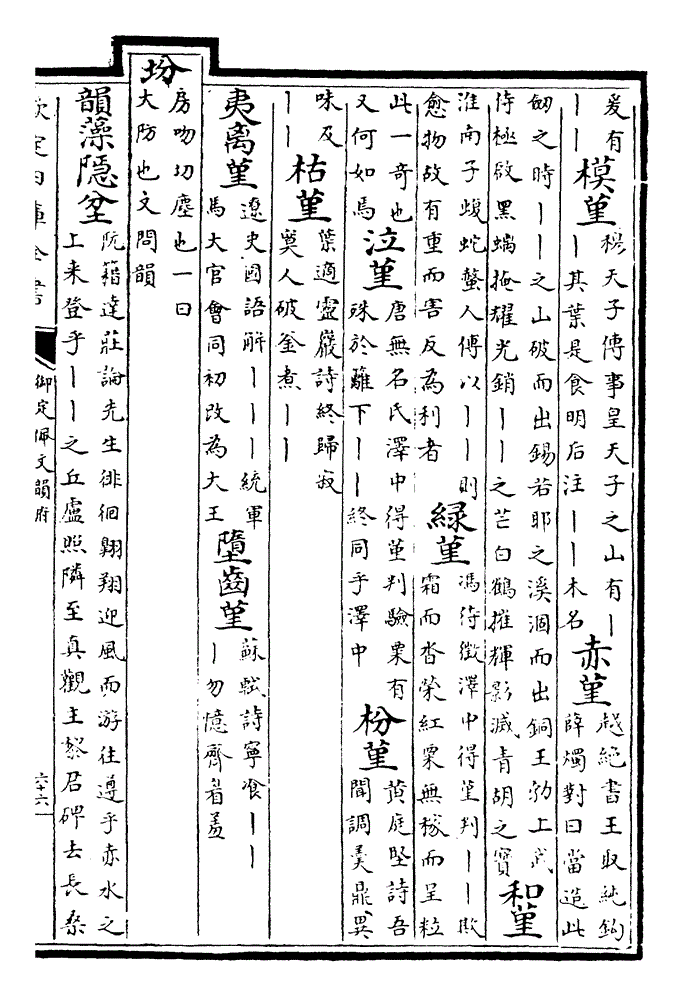 爰有
丨丨
模堇
穆天子傳事皇天子之山有丨
丨其葉是食明后注丨丨木名
赤堇
越絶書王取純鈎
薛燭對曰當造此
劒之時丨丨之山破而出錫若耶之溪涸而出銅王勃上武
侍極啟黑螭掩耀光銷丨丨之芒白鶴摧輝影滅青胡之寶
和堇
淮南子蝮蛇螫人傅以丨丨則
愈物故有重而害反為利者
緑堇
馮待徵澤中得堇判丨丨欺
霜而沓榮紅粟無稼而呈粒
此一奇也
又何如焉
泣堇
唐無名氏澤中得堇判驗粟有
殊於離下丨丨終同乎澤中
枌堇
黄庭堅詩吾
聞調羹鼎異
味及
丨丨
枯堇
葉適靈巖詩終歸寂
奠人破釜煮丨丨
夷离堇
遼史國語解丨丨丨統軍
馬大官會同初改為大王
墮齒堇
蘇軾詩寧飡丨丨
丨勿憶齊着羞
坋
房吻切塵也一曰
大防也文問韻
韻藻隱坌
阮籍達莊論先生徘徊翺翔迎風而游往遵乎赤水之
上来登乎丨丨之丘盧照隣至真觀主黎君碑去長桑
欽定四庫全書
御定佩文韻府
六十六